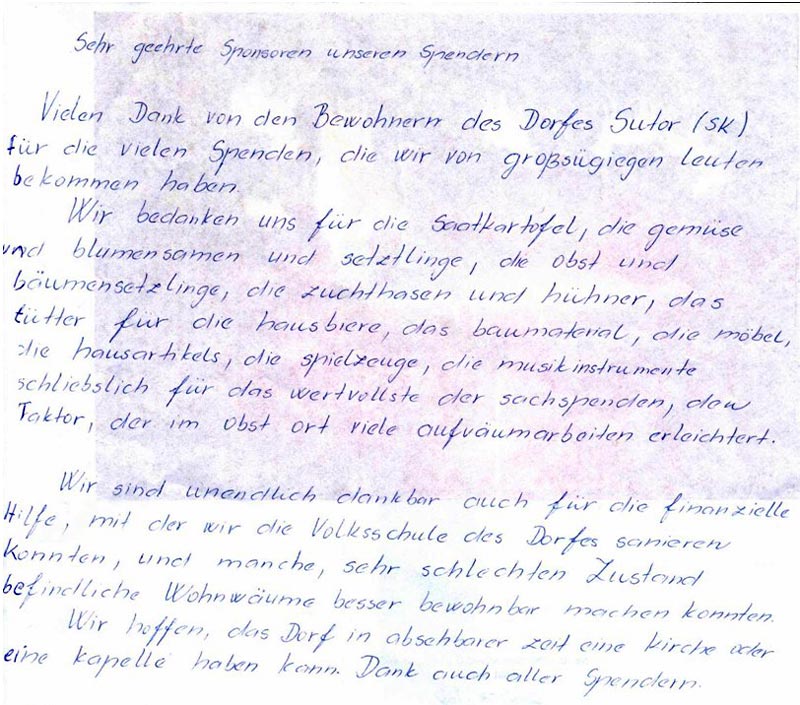 Sehr geehrte Sponsoren unseren Spendern
Vielen Dank von den Bewohnern des Dorfes Sutor (SK)
für die vielen Spenden, die wir von großsügiegen leuten
bekommen haben.
Wir bedanken uns für die Saatkartofel, die gemüse
und blumensamen und setztlinge, die obst und
bäumensetzlinge, die zuchthasen und hühner, das
fütter für die hausbiere, das baumaterial, die möbel,
die hausartikels, die spielzeuge, die musikinstrumente
schliebslich für das wertvollste der sachspenden, den
Taktor, der im obst ort viele aufräumarbeiten erleichtert.
Wir sind unendlich dankbar auch für die finanzielle
Hilfe, mit der wir die Volksschule des Dorfes sanieren
konnten, und manche, sehr schlechten Zustand
befindliche Wohnwäume besser bewohnbar machen konnten.
Wir hoffen, das Dorf in absehbarer zeit eine kirche oder
eine kapelle haben kann. Dank auch aller Spendern.